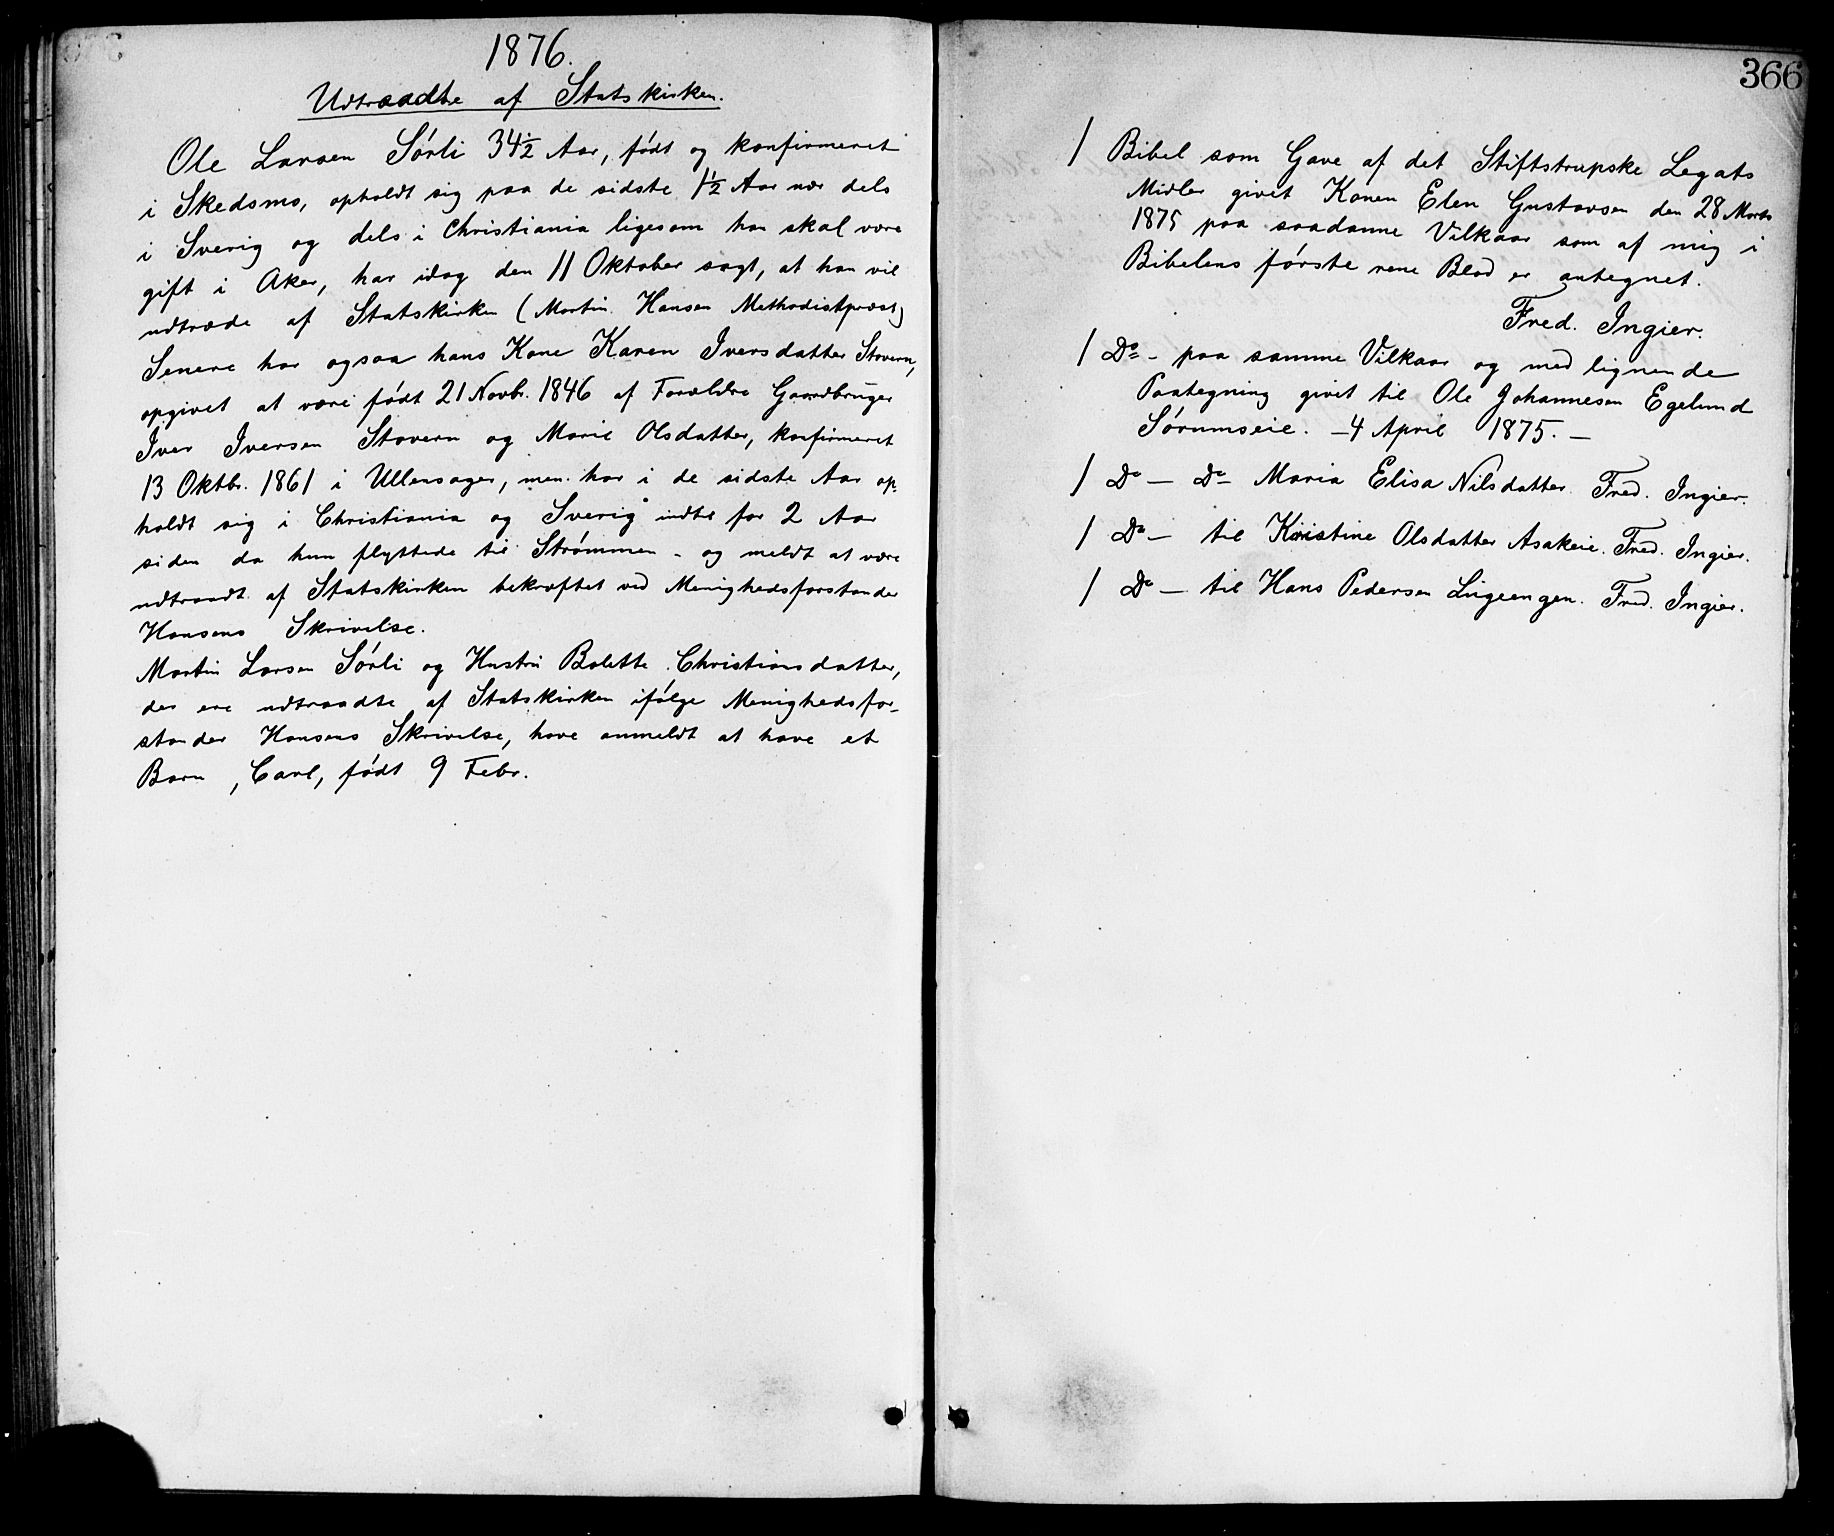 1876.
Udtraadte af Statskirken.
Ole Larsen Sórli 34½ Aar, fódt og konfirmeret
i Skedsmo, opholdt sig paa de sidste 1½ Aar nær dels
i Sverig og dels i Christiania ligesom han skal være
gift i Aker, har idag den 11 Oktober sagt, at han vil
udtræde af Statskirken (Martin Hansen Methodistpræst)
Senere har ogsaa hans Kone Karen Iversdatter Stovern,
opgivet at være født 21 Novbr. 1846 af Forældre Gaardbruger
Iver Iversen Stovern og Marie Olsdatter, konfirmeret
13 Oktbr. 1861 i Ullensager, men har i de sidste Aar op-
holdt sig i Christiania og Sverig indtil for 2 Aar
siden da hun flyttede til Strømmen - og meldt at være
udtraadt af Statskirken bekræftet ved Menighedsforstander
Hansens Skrivelse.
Martin Larsen Sórli og Hustru Bolette Christiansdatter,
der ere udtraadte af Statskirken ifólge Menighedsfor-
stander Hansens Skrivelse, have anmeldt at have et
Barn, Carl, fódt 9 Febr.
366
1 Bibel som Gave af det Stiftstrupske Legats
Midler givet Konen Elen Gustavsen den 28 Marts
1875 paa saadanne Vilkaar som af mig i
Bibelens fórste rene Blad er antegnet.
Fred. Ingier.
1 Do - paa samme Vilkaar og med lignende
Paategning givet til Ole Johannesen Egelund
Sórumseie. - 4 April 1875. -
1 Do - Do Maria Elisa Nilsdatter. Fred. Ingier.
1 Do - til Kristine Olsdatter Asakeie. Fred. Ingier.
1 Do - til Hans Pedersen Lugeengen. Fred. Ingier.